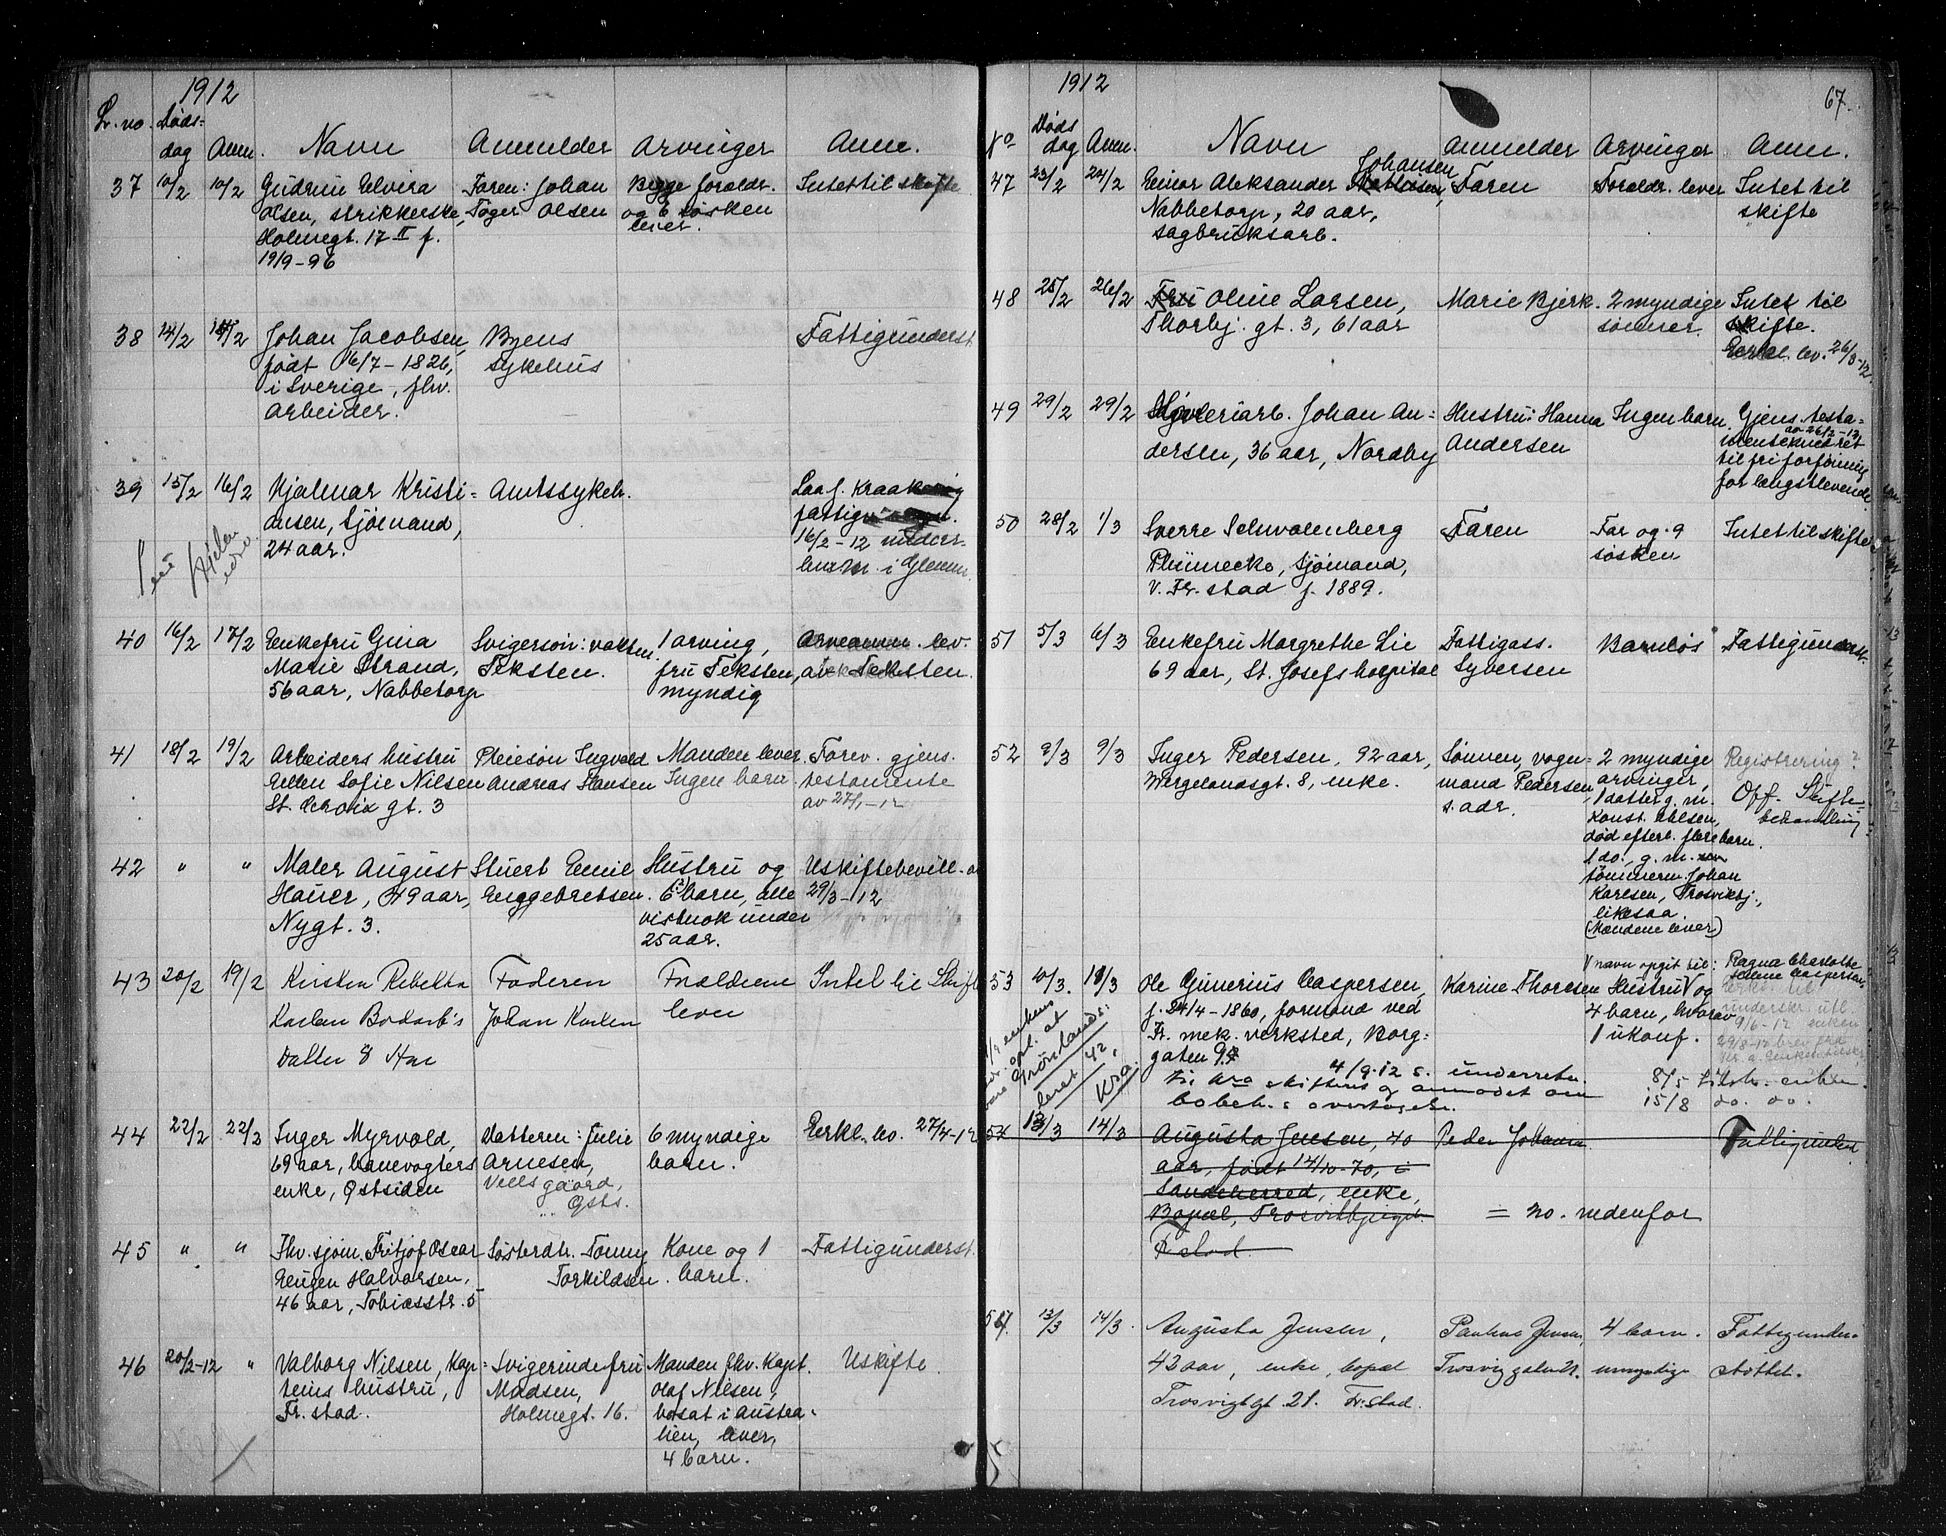 1912
L. no. Døds- dag Anm. Navn Anmelder Arvinger Anm.
37 10/2 10/2 Gudrun Elvira Faren: Johan Begge foreldr. Intet til skifte
Olsen, strikkerske, Tøger Olsen og 6 søsken
Holmegt. 17 II f. lever.
19/9-96
38 14/2 Johan Jacobsen, Byens Fattigunderst.
født 16/7-1826, sykehus
i Sverige, fhv.
arbeider.
39 15/2 16/2 Hjalmar Kristi- Amtssykeh. Laa f.
ansen, sjømand, fattigv.
24 aar. 16/2-12
i Glemm.
40 16/2 17/2 Enkefru Gina Svigersøn: 1 arving, lev.
Marie Strand, Teksten. fru Teksten, av Teksten.
56 aar, Nabbetorp myndig
41 18/2 19/2 Arbeiders hustru Pleiesøn Ingvald Manden lever Forev. gjens.
Ellen Sofie Nilsen Andreas Hansen Ingen barn testamente
St. Croix gt. 3 av 27/1-12
42 " " Maler August Stuert Emil Hustru og Uskiftebevill. av
Hauer, 49 aar, Enggebretsen. 6 barn, alle 29/3-12
Nygt. 3. vistnok under
25 aar.
43 20/2 19/2 Kirsten Rebekka Faderen Forældrene Intet til Skifte
Karlsen Johan Karlsen lever
Datter 8 Aar
44 22/2 22/3 Inger Myrvold, Datteren: Julie 6 myndige Erkl. lev. 27/4-12
69 aar, banevogters Arnesen, barn.
enke, Østsiden Veelsgaard,
Østs.
45 " " Fhv. sjøm. Fritjof Oscar Søsterdtr. Tonny Kone og 1 Fattigunderst.
Eugen Halvorsen, Torkildsen. barn.
46 aar, Tobiasstr. 5
46 20/2-12 " Valborg Nilsen, Kap- Svigerinde fru Manden fhv. Kapt. Uskifte.
teins hustru, Madsen, Olaf Nilsen,
Fr.stad. Holmegt. 16. bosat i Austra-
lien, lever,
4 barn.
1912
67.
No Døds dag Anm. Navn Anmelder Arvinger Anm.
Johansen
47 23/2 24/2 Einar Aleksander Faren Foreldr. lever Intet til
Nabbetorp, 20 aar, skifte
sagbruksarb.
48 25/2 26/2 Fru Oline Larsen, Marie Bjerk. 2 myndige Intet til
Thorbj. gt. 3, 61 aar sønner. skifte.
Erkl. lev. 26/3-12.
49 29/2 29/2 Høvleriarb. Johan An- Hustru: Hanna Ingen barn Gjens. testa-
av 26/2-12
dersen, 36 aar, Nordby Andersen mente
til fri forføining
for længstlevende.
50 28/2 1/3 Sverre Schwalenberg Faren Far og 9 Intet til skifte
Plünnecke, sjømand, søsken
v. Fr. stad f. 1889.
51 5/3 6/3 Enkefru Margrethe Lie Fattigass. Barnløs Fattigunderst.
69 aar, St. Josefs hospital Syversen
52 9/3 9/3 Inger Pedersen, 92 aar, Sønnen, vogn- 2 myndige Registrering?
Wergelandsgt. 8, enke. mand Pedersen arvinger, Off. Skifte-
s. adr. 1 datter g. m. behandling
Konst. Ohlsen,
død efterl. flere barn.
1 do., g. m.
tømmerm. Johan
Karlsen, Trosvikbj.,
likesaa.
(Mændene lever)
V navn opgit til: Ragna Charlotte
53 10/3. 11/3 Ole Gunerius Caspersen, Karine Thoresen Hustru V og
f. 24/4-1860, formand ved 4 barn, hvorav
Fr. mek. verksted, Borg- 1 ukonf. 9/6-12 enken
gaten 9 29/8-12 brev fra
4/9-12 s. underretn. 8/5 enken.
skifteret og anmodet om 15/8 do. do.
bobeh.s overtagelse.
54 13/3 14/3 Augusta Jensen, 40 Peder Johansen Fattigunderst.
aar, født 14/10-70, i
Sandeherred, enke,
Bopæl, = no. nedenfor
Fr stad.
54. 13/3 14/3. Augusta Jensen, Paulina Jensen, 4 barn. Fattigunder-
43 aar, enke, bopæl Trosvig umyndige støttet.
Trosvigbgt 21. Fr:stad.